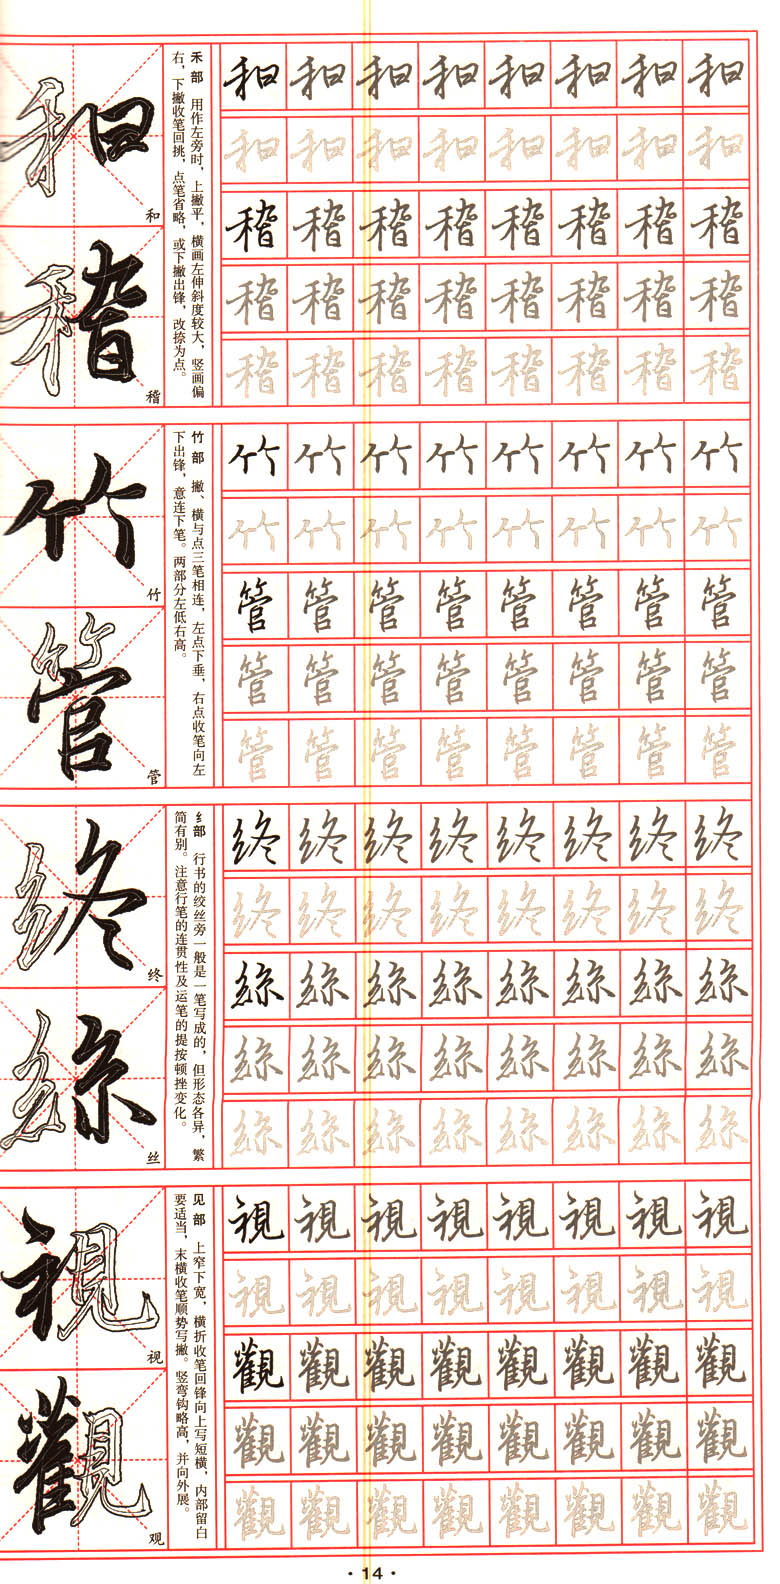 和
稽
禾部 用作左旁时，上撇平，横画左伸斜度较大，竖画偏
右，下撇收笔回挑，点笔省略，或下撇出锋，改捺为点。
和和和和和和和和
和和和和和和和和
稽稽稽稽稽稽稽稽
稽稽稽稽稽稽稽稽
稽稽稽稽稽稽稽稽
竹
管
竹部 撇、横与点三笔相连，左点下垂，右点收笔向左
下出锋，意连下笔。两部分左低右高。
竹竹竹竹竹竹竹竹
竹竹竹竹竹竹竹竹
管管管管管管管管
管管管管管管管管
管管管管管管管管
终
丝
纟部 行书的绞丝旁一般是一笔写成的，但形态各异，繁
简有别。注意行笔的连贯性及运笔的提按顿挫变化。
终终终终终终终终
终终终终终终终终
絲絲絲絲絲絲絲絲
絲絲絲絲絲絲絲絲
絲絲絲絲絲絲絲絲
视
观
见部 上窄下宽，横折收笔回锋向上写短横，内部留白
要适当，末横收笔顺势写撇。竖弯钩略高，并向外展。
視視視視視視視視
視視視視視視視視
觀觀觀觀觀觀觀觀
觀觀觀觀觀觀觀觀
觀觀觀觀觀觀觀觀
·14·